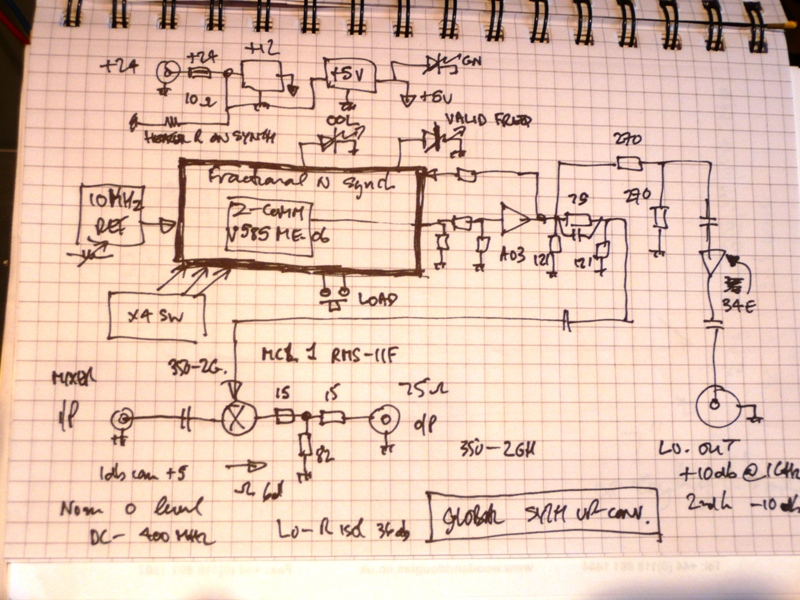 +24
+24
+12
10Ω
+5V
GN
+5V
HEATER R ON SYNTH
OOL
VALID FREQ
Fractional N Synth
10MHz
REF
Z-COMM
V585 ME-06
270
270
75
A03
121
121
34E
X4 SW
LOAD
350-2G.
MCL 1 RMS-11F
MIXER
I/P
15
15
82
75Ω
O/P
1db com +5
Nom 0 level
DC- 400MHz
LO-R isol 36db
350-2GH
LO. OUT
+10db @ 1GHz
2ndh -10db
GLOBAL SYNTH UP-CONV.